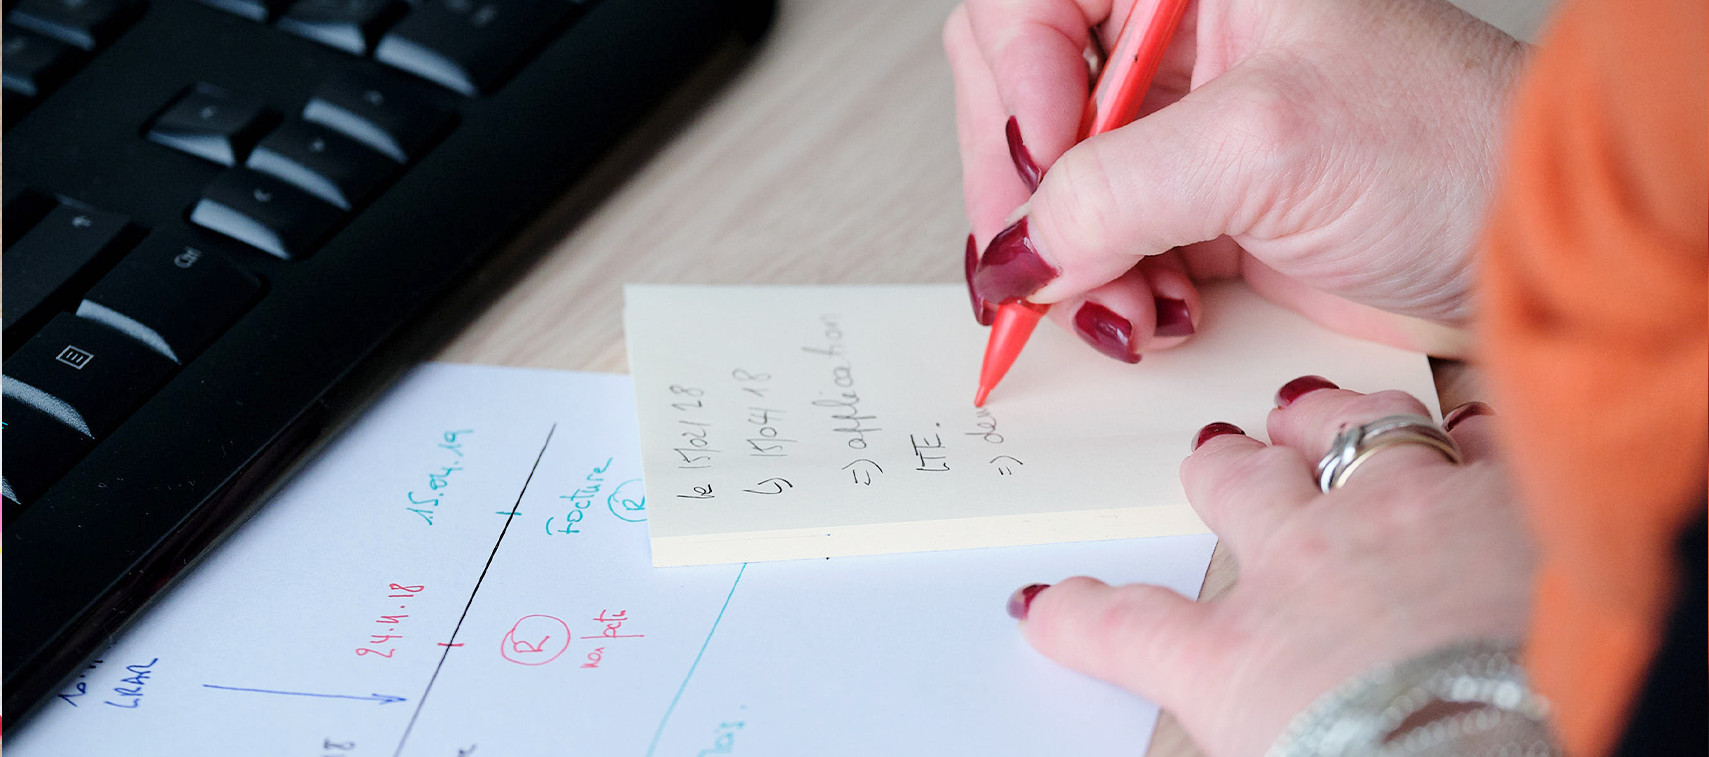 le 15/02/28
↳ 15/04/18
=> application
LTE.
=> dem
15.04.19
Facture
R
24.11.18
R
non factu
LRAR
18
Mois.
Ctrl